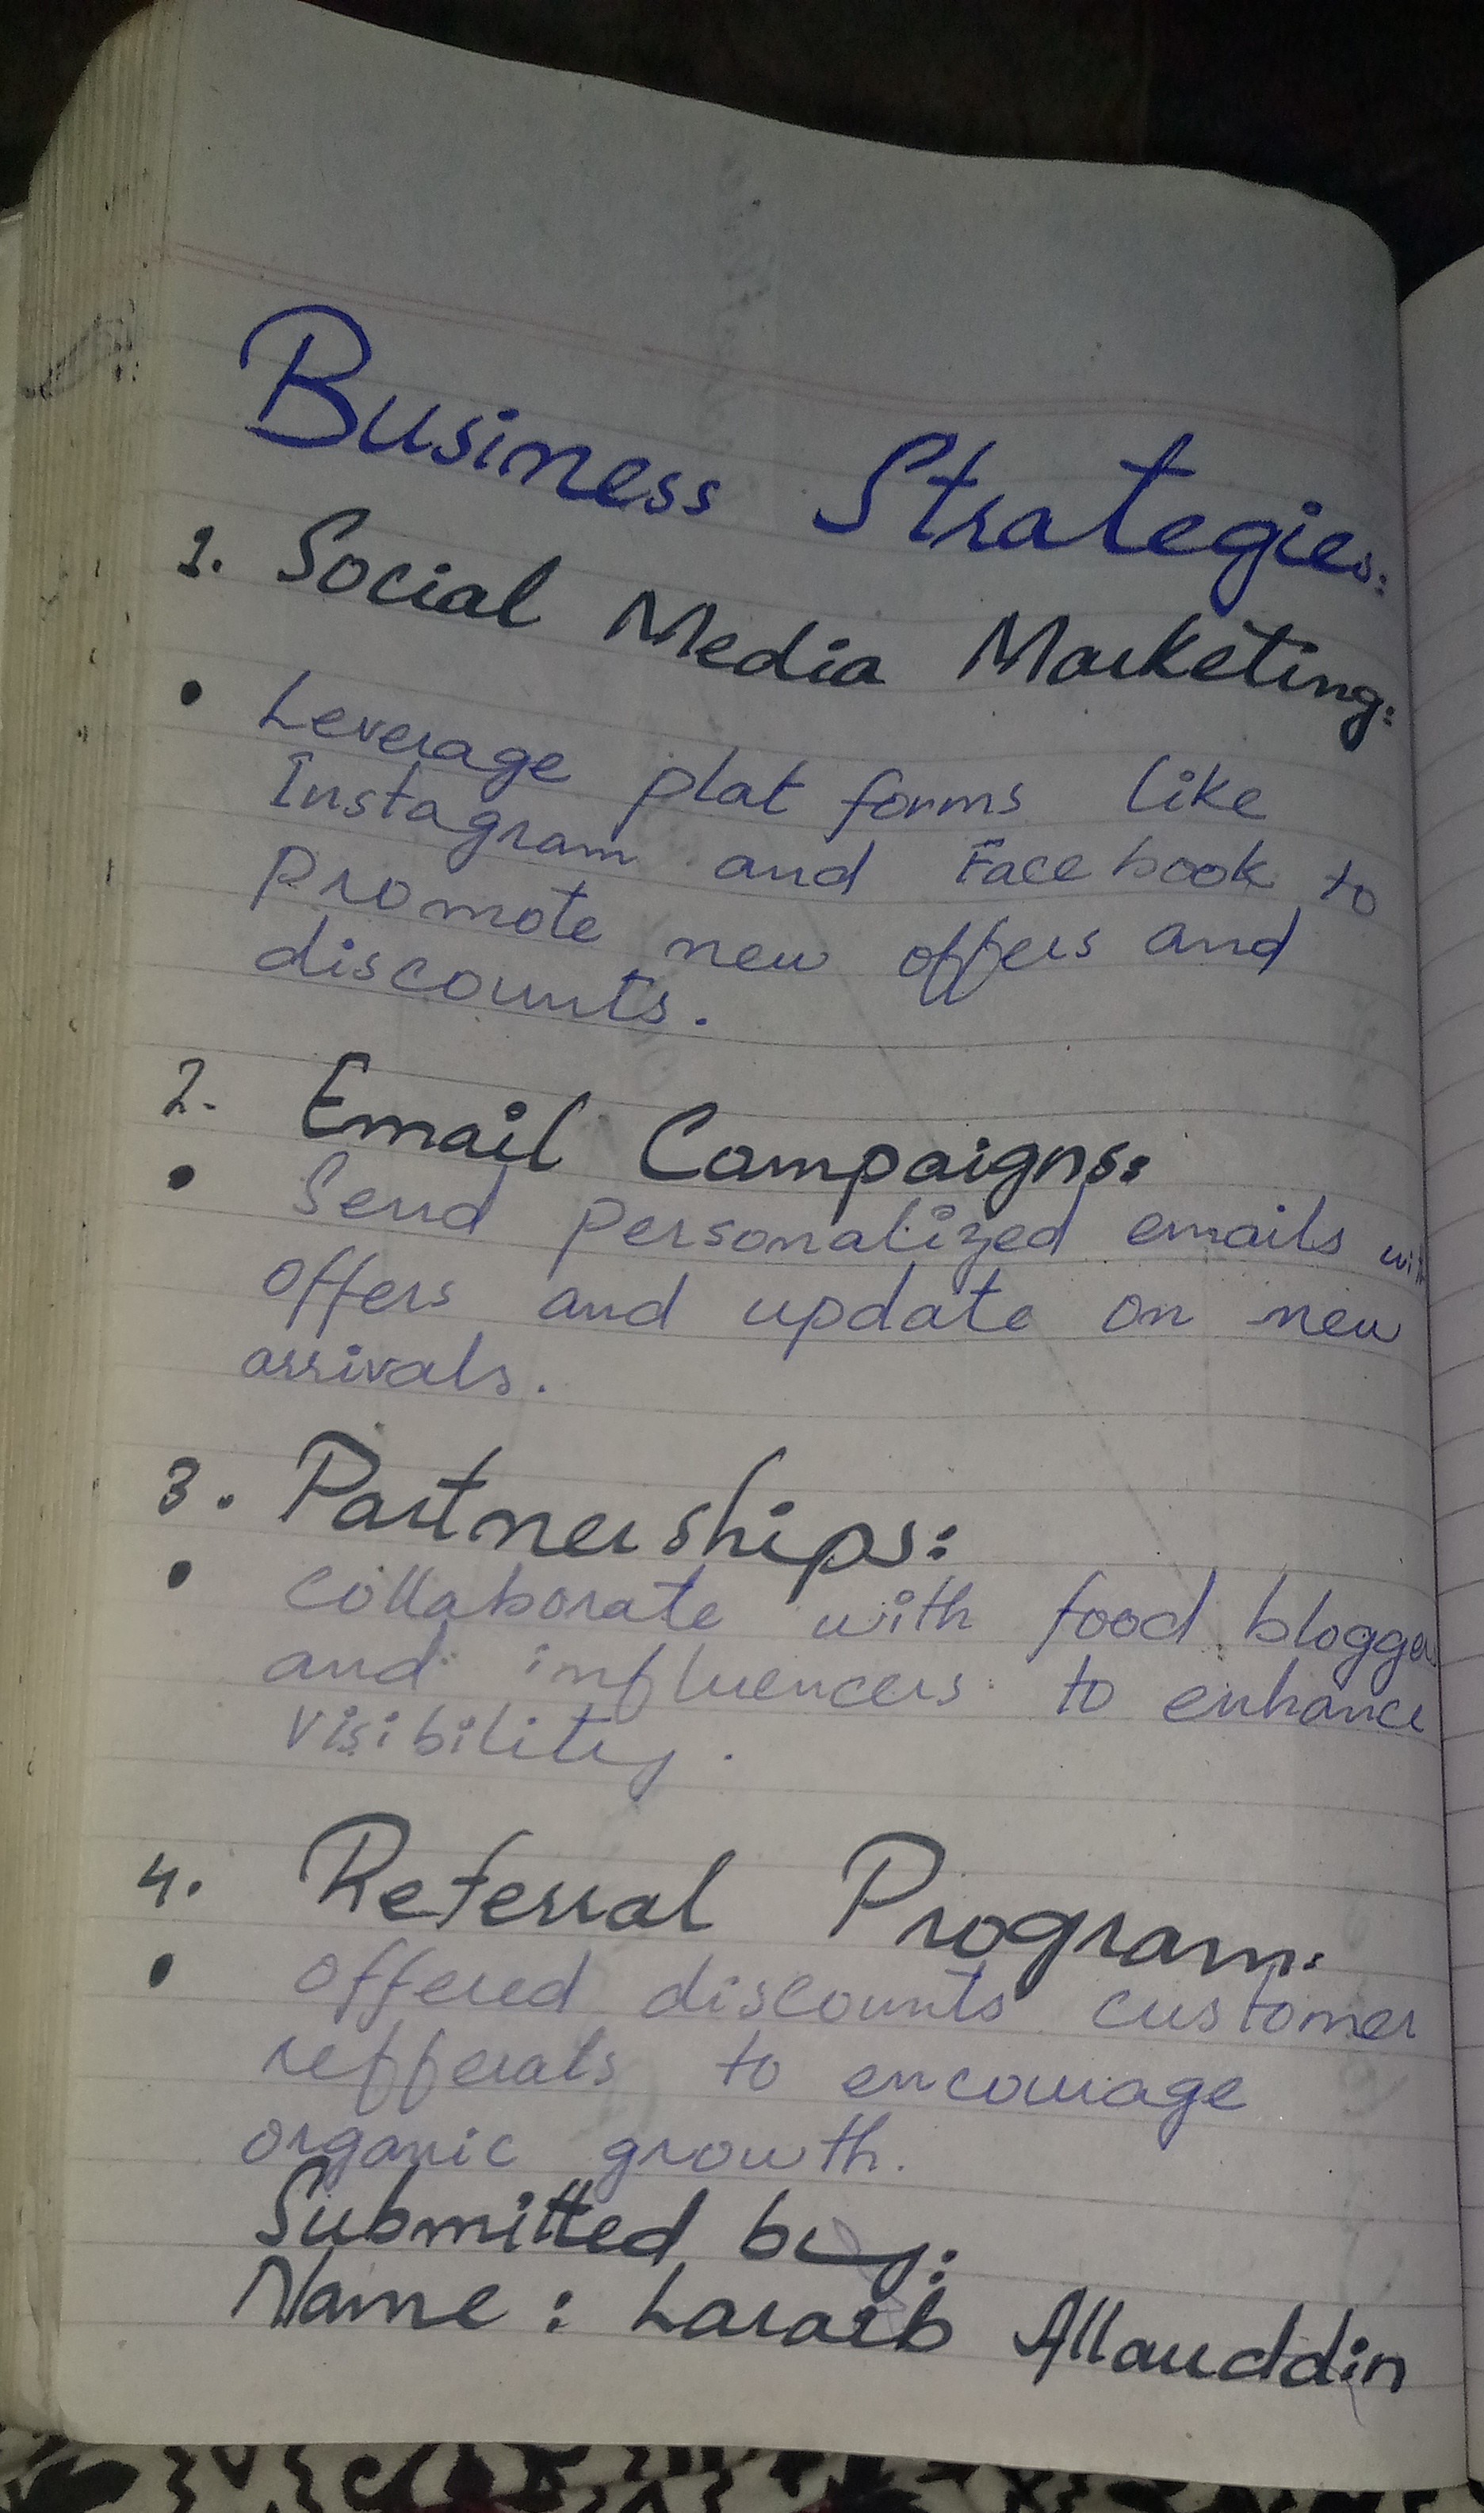 Business Strategies:
1. Social Media Marketing:
• Leverage plat forms like
Instagram and Face book to
promote new offers and
discounts.
2. Email Campaigns:
• Send personalized emails with
offers and update on new
arrivals.
3. Partnerships:
• Collaborate with food blogger
and influencers to enhance
visibility.
4. Referral Program:
• Offered discounts customer
refferals to encourage
organic growth.
Submitted by:
Name: Laraib Allauddin